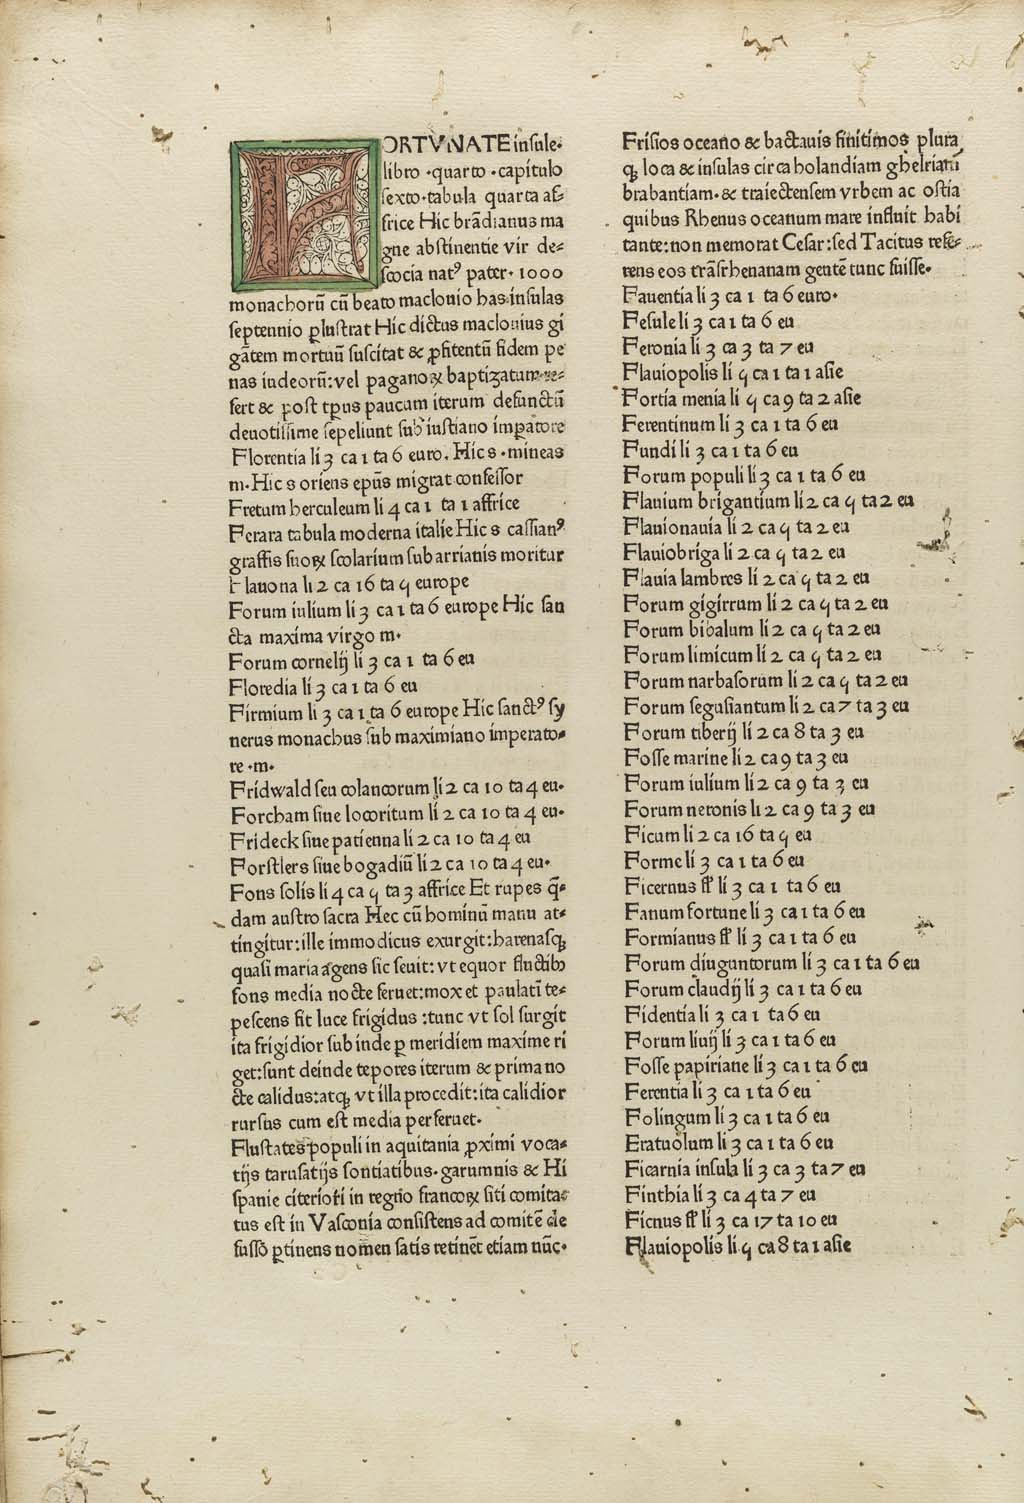 FORTVNATE insule·
libro ·quarto ·capitulo
sexto·tabula quarta af⸗
frice Hic brādianus ma
gne abstinentie vir de⸗
scocia natꝰ pater· 1000
monachorū cū beato maclouio has insulas
septennio ꝑlustrat Hic dictus maclouius gi
gātem mortuū suscitat & ꝓfitentū fidem pe
nas iudeorū: vel paganoꝝ baptizatum re⸗
fert & post tp̄us paucum iterum defunctū
deuotissime sepeliunt sub iustiano imꝑatore
Florentia li 3 ca 1 ta 6 euro. Hic s ·mineas
m·Hic s oriens ep̄us migrat confessor
Fretum herculeum li 4 ca 1 ta 1 affrice
Ferara tabula moderna italie Hic s cassianꝰ
graffis suoꝝ scolarium sub arrianis moritur
Flauona li 2 ca 16 ta 5 europe
Forum iulium li 3 ca 1 ta 6 europe Hic san
cta maxima virgo m·
Forum cornelij li 3 ca 1 ta 6 eu
Floredia li 3 ca 1 ta 6 eu
Firmium li 3 ca 1 ta 6 europe Hic sanctꝰ sy
nerus monachus sub maximiano imperato⸗
re ·m·
Fridwald seu colancorum li 2 ca 10 ta 4 eu·
Forcham siue locoritum li 2 ca 10 ta 4 eu·
Frideck siue patienna li 2 ca 10 ta 4 eu
Forstlers siue bogadiū li 2 ca 10 ta 4 eu·
Fons solis li 4 ca 5 ta 3 affrice Et rupes q̄⸗
dam austro sacra Hec cū hominū manu at⸗
tingitur: ille immodicus exurgit: harenasqꝫ
quasi maria agens sic seuit: vt equor fluctibꝰ
fons media nocte feruet: mox et paulatī te⸗
pescens fit luce frigidus :tunc vt sol surgit
ita frigidior subinde ꝑ meridiem maxime ri
get: sunt deinde tepores iterum & prima no
cte calidus: atqꝫ vt illa procedit: ita calidior
rursus cum est media perferuet·
Flustates populi in aquitania ꝓximi voca⸗
tijs tarusatijs sontiatibus·garumnis & Hi
spanie citerioti in regno francoꝝ siti comita⸗
tus est in Vasconia consistens ad comitē de
fussō ꝑtinens nomen satis retinēt etiam nūc·
Frisios oceano & bactauis finitimos plura
qꝫ loca & insulas circa holandiam ghelriam
brabantiam·& traiectensem vrbem ac ostia
quibus Rhenus oceanum mare influit habi
tante: non memorat Cesar: sed Tacitus refe⸗
rens eos trāsrhenanam gentē tunc fuisse·
Fauentia li 3 ca 1 ta 6 euro·
Fesule li 3 ca 1 ta 6 eu
Feronia li 3 ca 3 ta 7 eu
Flauiopolis li 5 ca 1 ta 1 asie
Fortia menia li 5 ca 9 ta 2 asie
Ferentinum li 3 ca 1 ta 6 eu
Fundi li 3 ca 1 ta 6 eu
Forum populi li 3 ca 1 ta 6 eu
Flauium brigantium li 2 ca 5 ta 2 eu
Flauionauia li 2 ca 5 ta 2 eu
Flauiobriga li 2 ca 5 ta 2 eu
Flauia lambres li 2 ca 5 ta 2 eu
Forum gigirrum li 2 ca 5 ta 2 eu
Forum bibalum li 2 ca 5 ta 2 eu
Forum limicum li 2 ca 5 ta 2 eu
Forum narbasorum li 2 ca 5 ta 2 eu
Forum segusiantum li 2 ca 7 ta 3 eu
Forum tiberij li 2 ca 8 ta 3 eu
Fosse marine li 2 ca 9 ta 3 eu
Forum iulium li 2 ca 9 ta 3 eu
Forum neronis li 2 ca 9 ta 3 eu
Ficum li 2 ca 16 ta 5 eu
Forme li 3 ca 1 ta 6 eu
Ficernus fl̄ li 3 ca 1 ta 6 eu
Fanum fortune li 3 ca 1 ta 6 eu
Formianus fl̄ li 3 ca 1 ta 6 eu
Forum diuguntorum li 3 ca 1 ta 6 eu
Forum claudij li 3 ca 1 ta 6 eu
Fidentia li 3 ca 1 ta 6 eu
Forum liuij li 3 ca 1 ta 6 eu
Fosse papiriane li 3 ca 1 ta 6 eu
Ferentia li 3 ca 1 ta 6 eu
Folingum li 3 ca 1 ta 6 eu
Eratuolum li 3 ca 1 ta 6 eu
Ficarnia insula li 3 ca 3 ta 7 eu
Finthia li 3 ca 4 ta 7 eu
Ficnus fl̄ li 3 ca 17 ta 10 eu
Flauiopolis li 5 ca 8 ta 1 asie